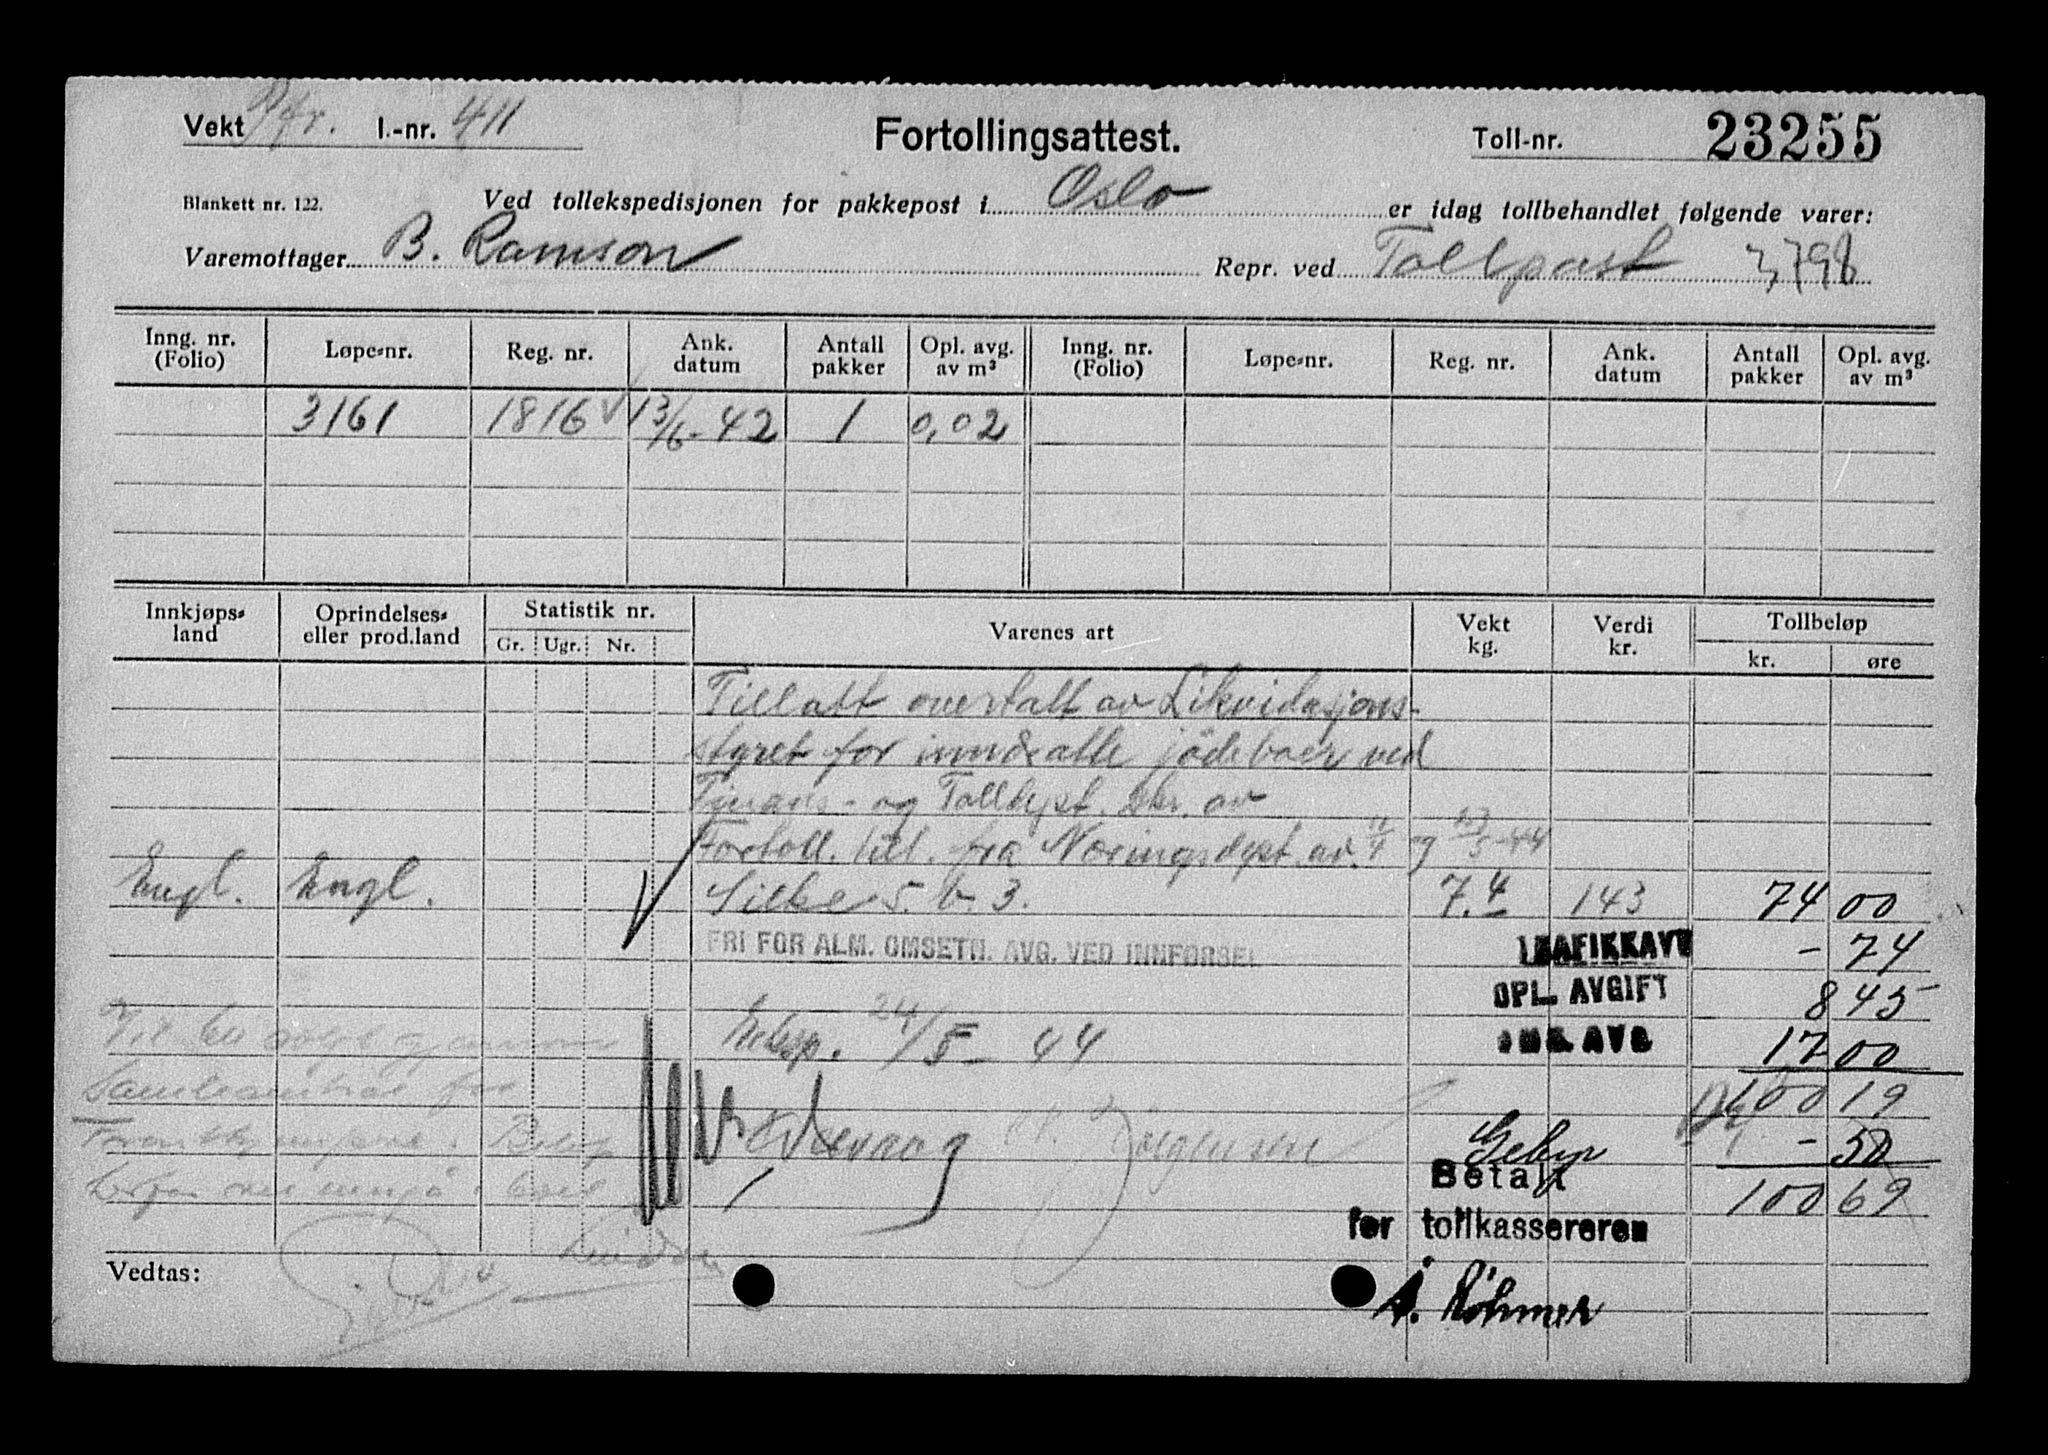 Vekt Pfr. l.-nr. 411 Fortollingsattest. Toll-nr. 23255
Blankett nr. 122. Ved tollekspedisjonen for pakkepost i Oslo er idag tollbehandlet følgende varer:
Varemottager B. Ramson Repr. ved Tollpost 3798
Inng. nr. (Folio) Løpe-nr. Reg. nr. Ank. datum Antall pakker Opl. avg. av m³ Inng. nr. (Folio) Løpe-nr. Reg. nr. Ank. datum Antall pakker Opl. avg. av m³
3161 1816 13/6-42 1 0,02
Innkjøps-land Oprindelses- eller prod.land Statistik nr. Varenes art Vekt kg. Verdi kr. Tollbeløp
Gr. Ugr. Nr. kr. øre
Tillatt overtatt av Likvidasjons-
styret for inndratte jødeboer ved
Finans- og Tolldept. av
Fortoll. till. fra Næringsdept. av 11/4 og 5-44
Engl. Engl. Silke 5. b. 3. 7.4 143 74 00
FRI FOR ALM. OMSETN. AVG. VED INNFØRSEL TRAFIKKAVG - 74
OPL. AVGIFT 8 45
Eksp. 24/5-44 OMS. AVG 17 00
100 19
Jørgensen Gebyr - 50
1 Betalt 100 69
for tollkassereren
Vedtas:
A. Böhmer